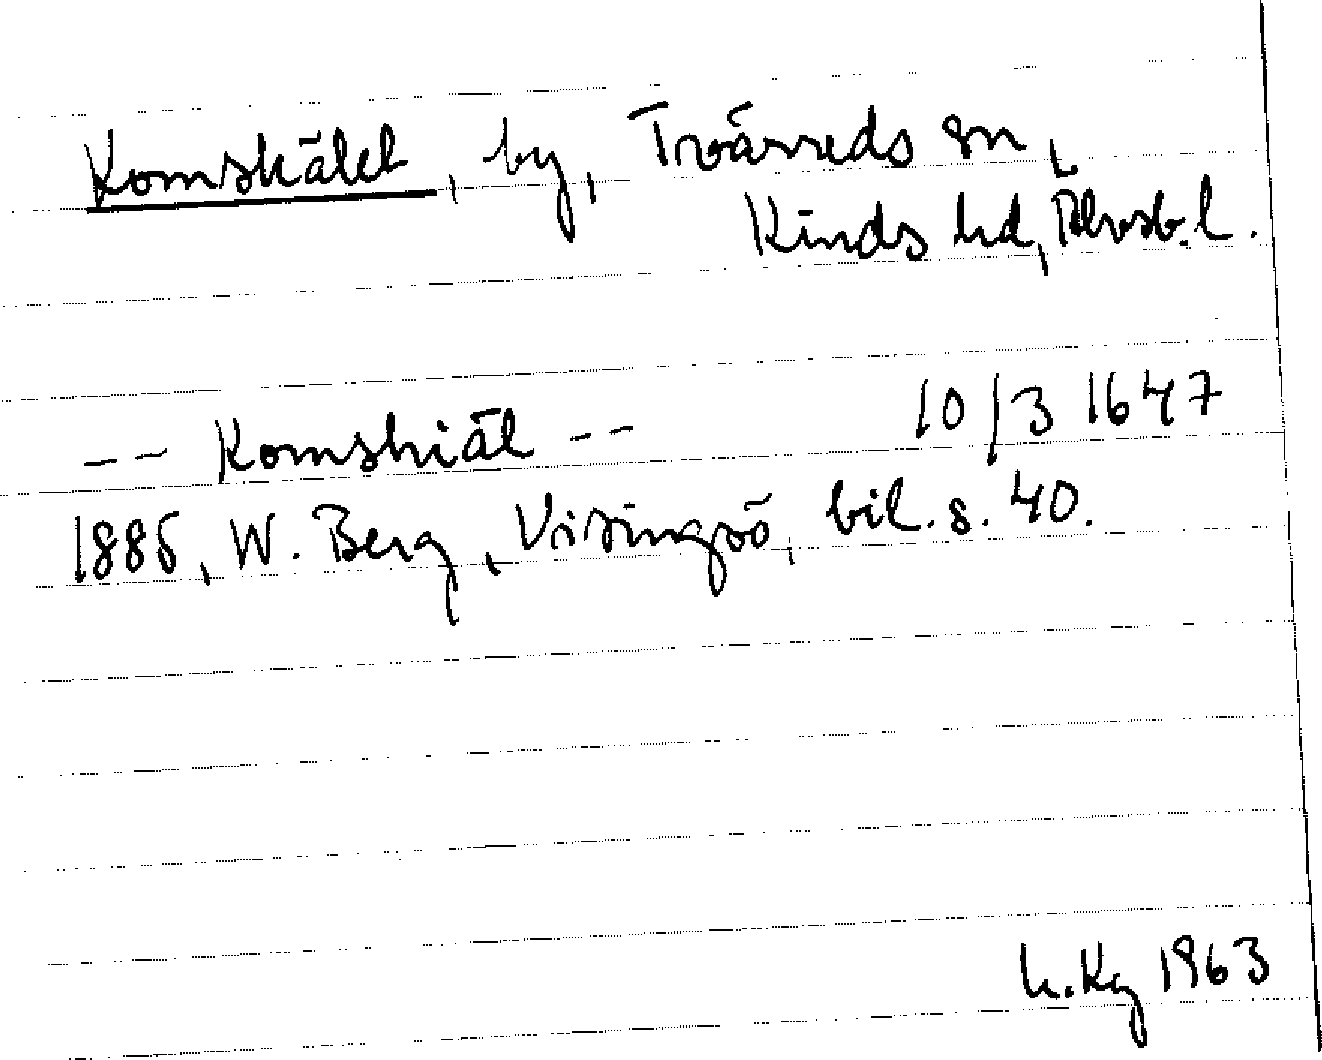 Komskälet, by, Tvärreds sn,
Kinds hd, Älvsb. l.
-- Komskiäl -- 10/3 1647
1885, W. Berg, Visingsö, bil. s. 40.
h. Kg 1963